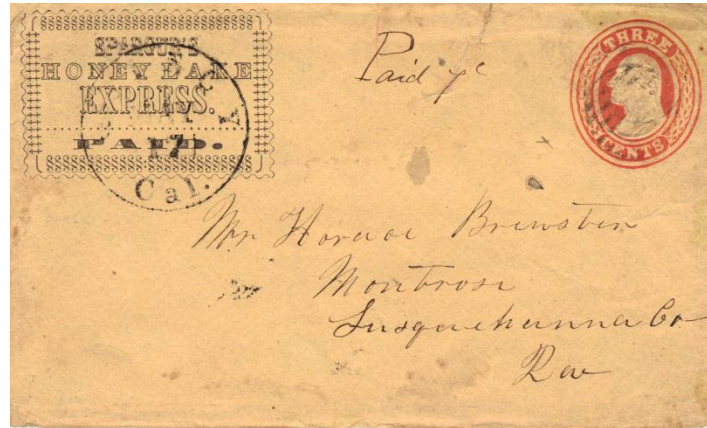 SPARGUR'S
HONEY LAKE
EXPRESS.
PAID.
17
Cal.
Paid 7c
THREE
CENTS
Mr Horace Brewster
Montrose
Susquehanna Co